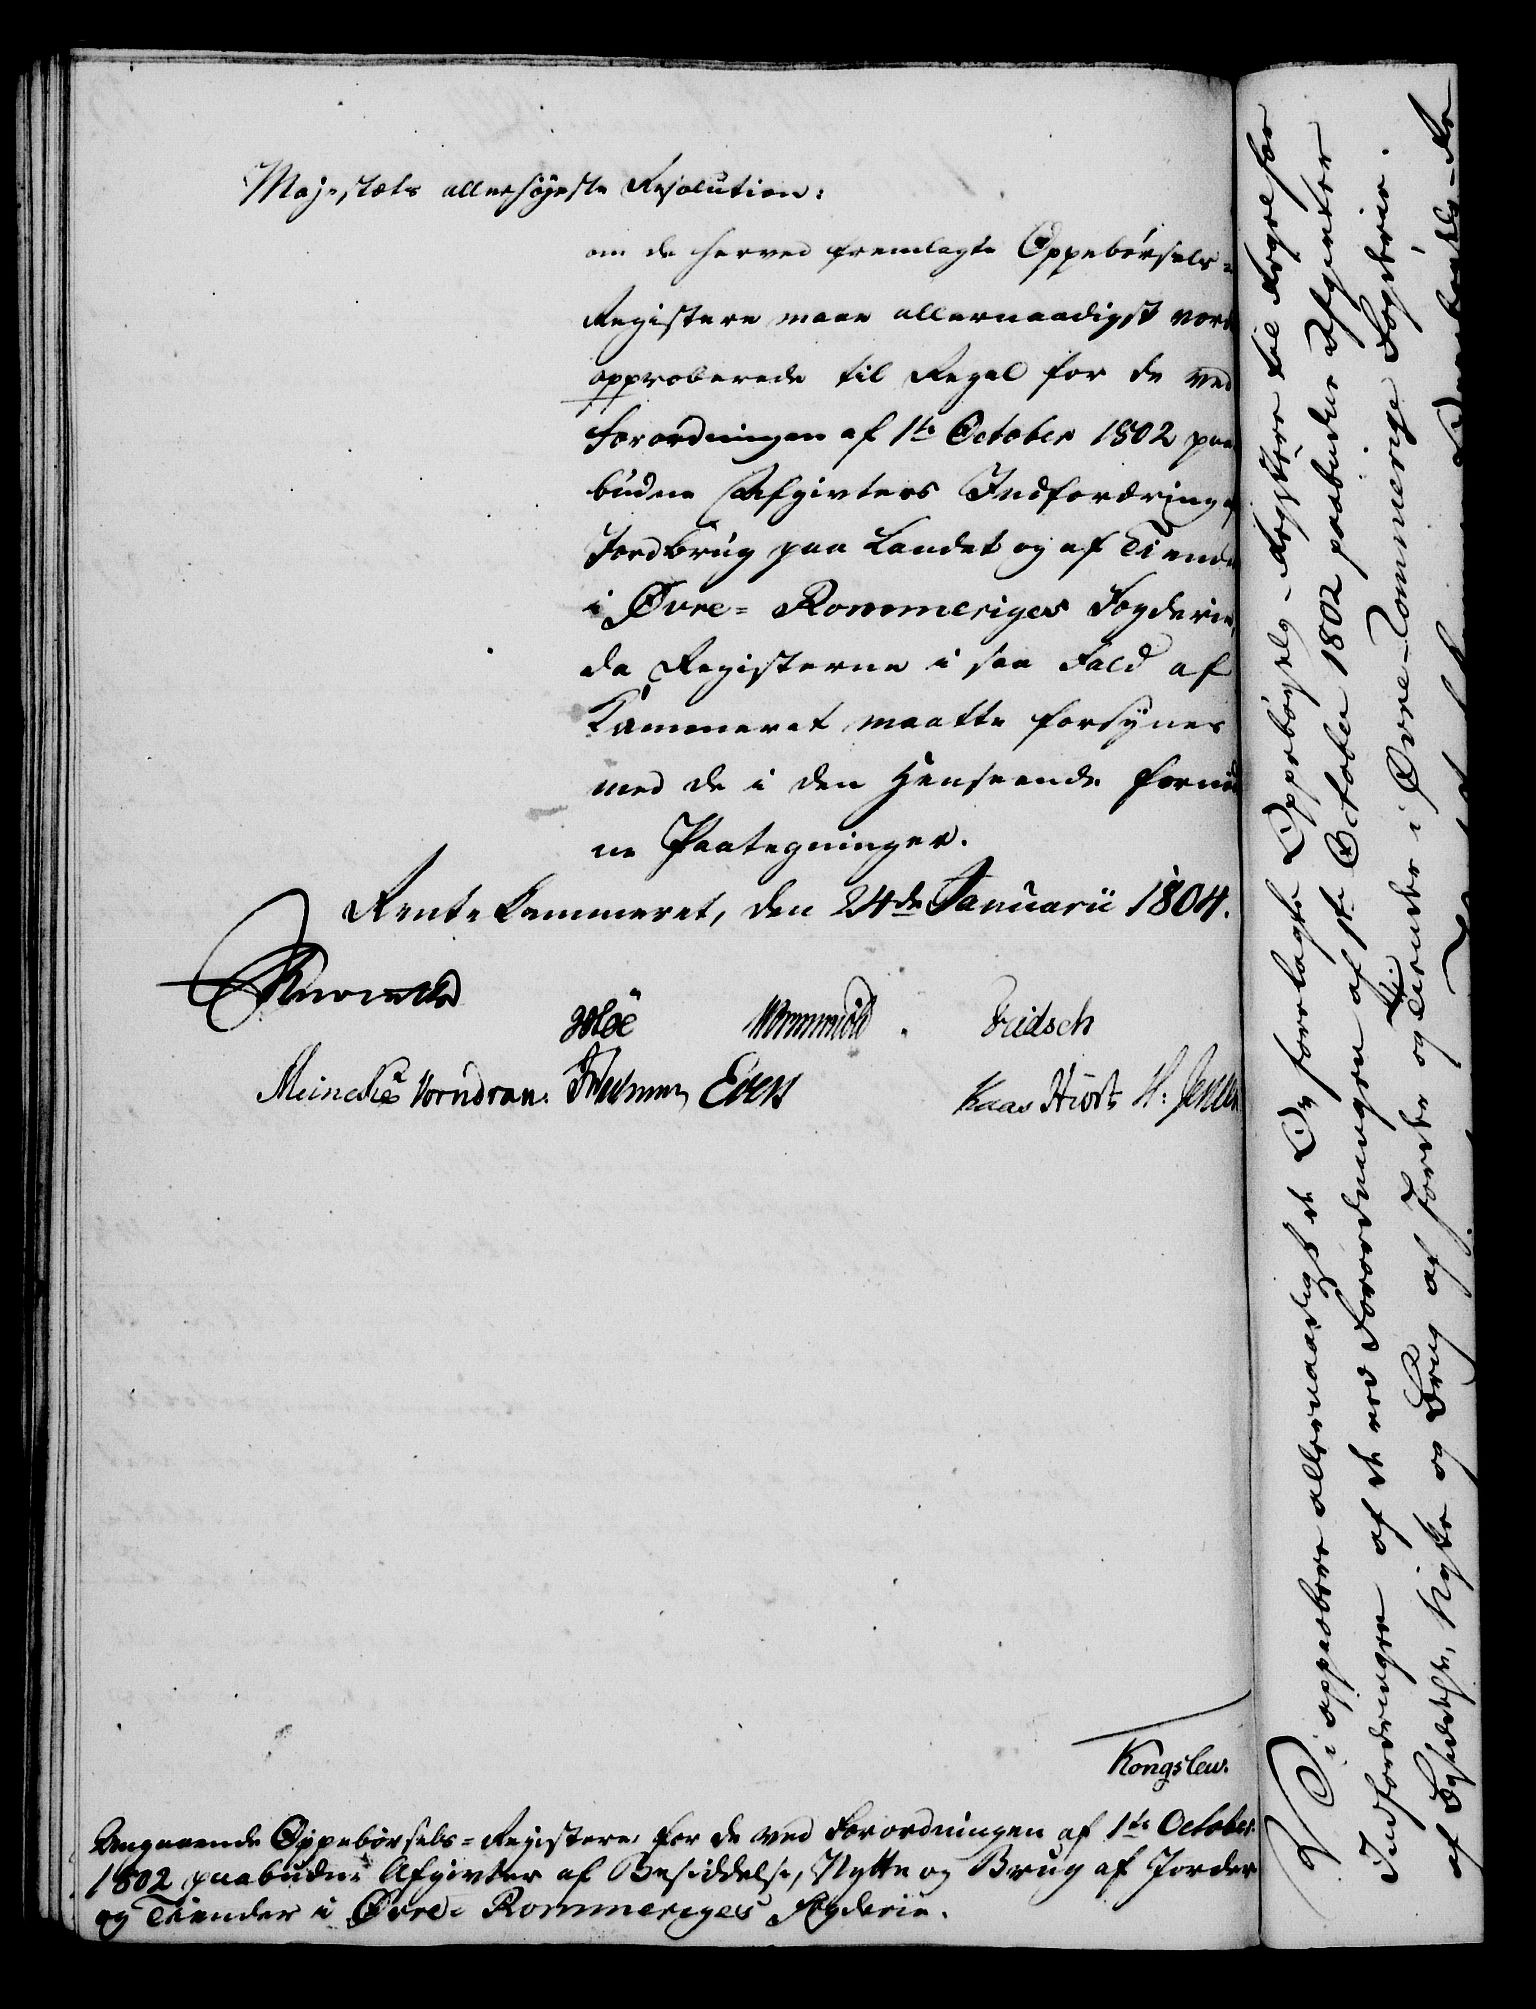 Majestæts allerhøyeste Resolution:
om de herved fremlagte Oppebørsels-
Registere maae allernaadigst vorde
approberede til Regel for de ved
Forordningen af 1te October 1802 paa
budne Afgivters Indfordring af
Jordbrug paa Landet og af Tiende
i Øvre- Rommeriges Fogderie,
da Registerne i saa Fald af
Kammeret maatte forsynes
med de i den Henseende fornød
ne Paategninger.
Rente Kammeret, den 24de Januarii 1804.
Moe Wormskiold. Fridsch
Meincke Vorndran. Evers Kaas Hiort H: Jensen
Kongslew.
Angaaende Oppebørsels-Registere for de ved Forordningen af 1te October
1802 paabudne Afgivter af Besiddelse, Nytte og Brug af Jorder
og Tiender i Øvre- Rommeriges Fogderie.
Vi approbere allernaadigst de Os forelagte Oppebørsels-Registere til Regel for
Indfordringen af de ved Forordningen af 1te October 1802 paabudne Afgivter
af Besiddelse, Nytte og Brug af Jorder og Tiender i Øvre-Rommerige Fogderie.